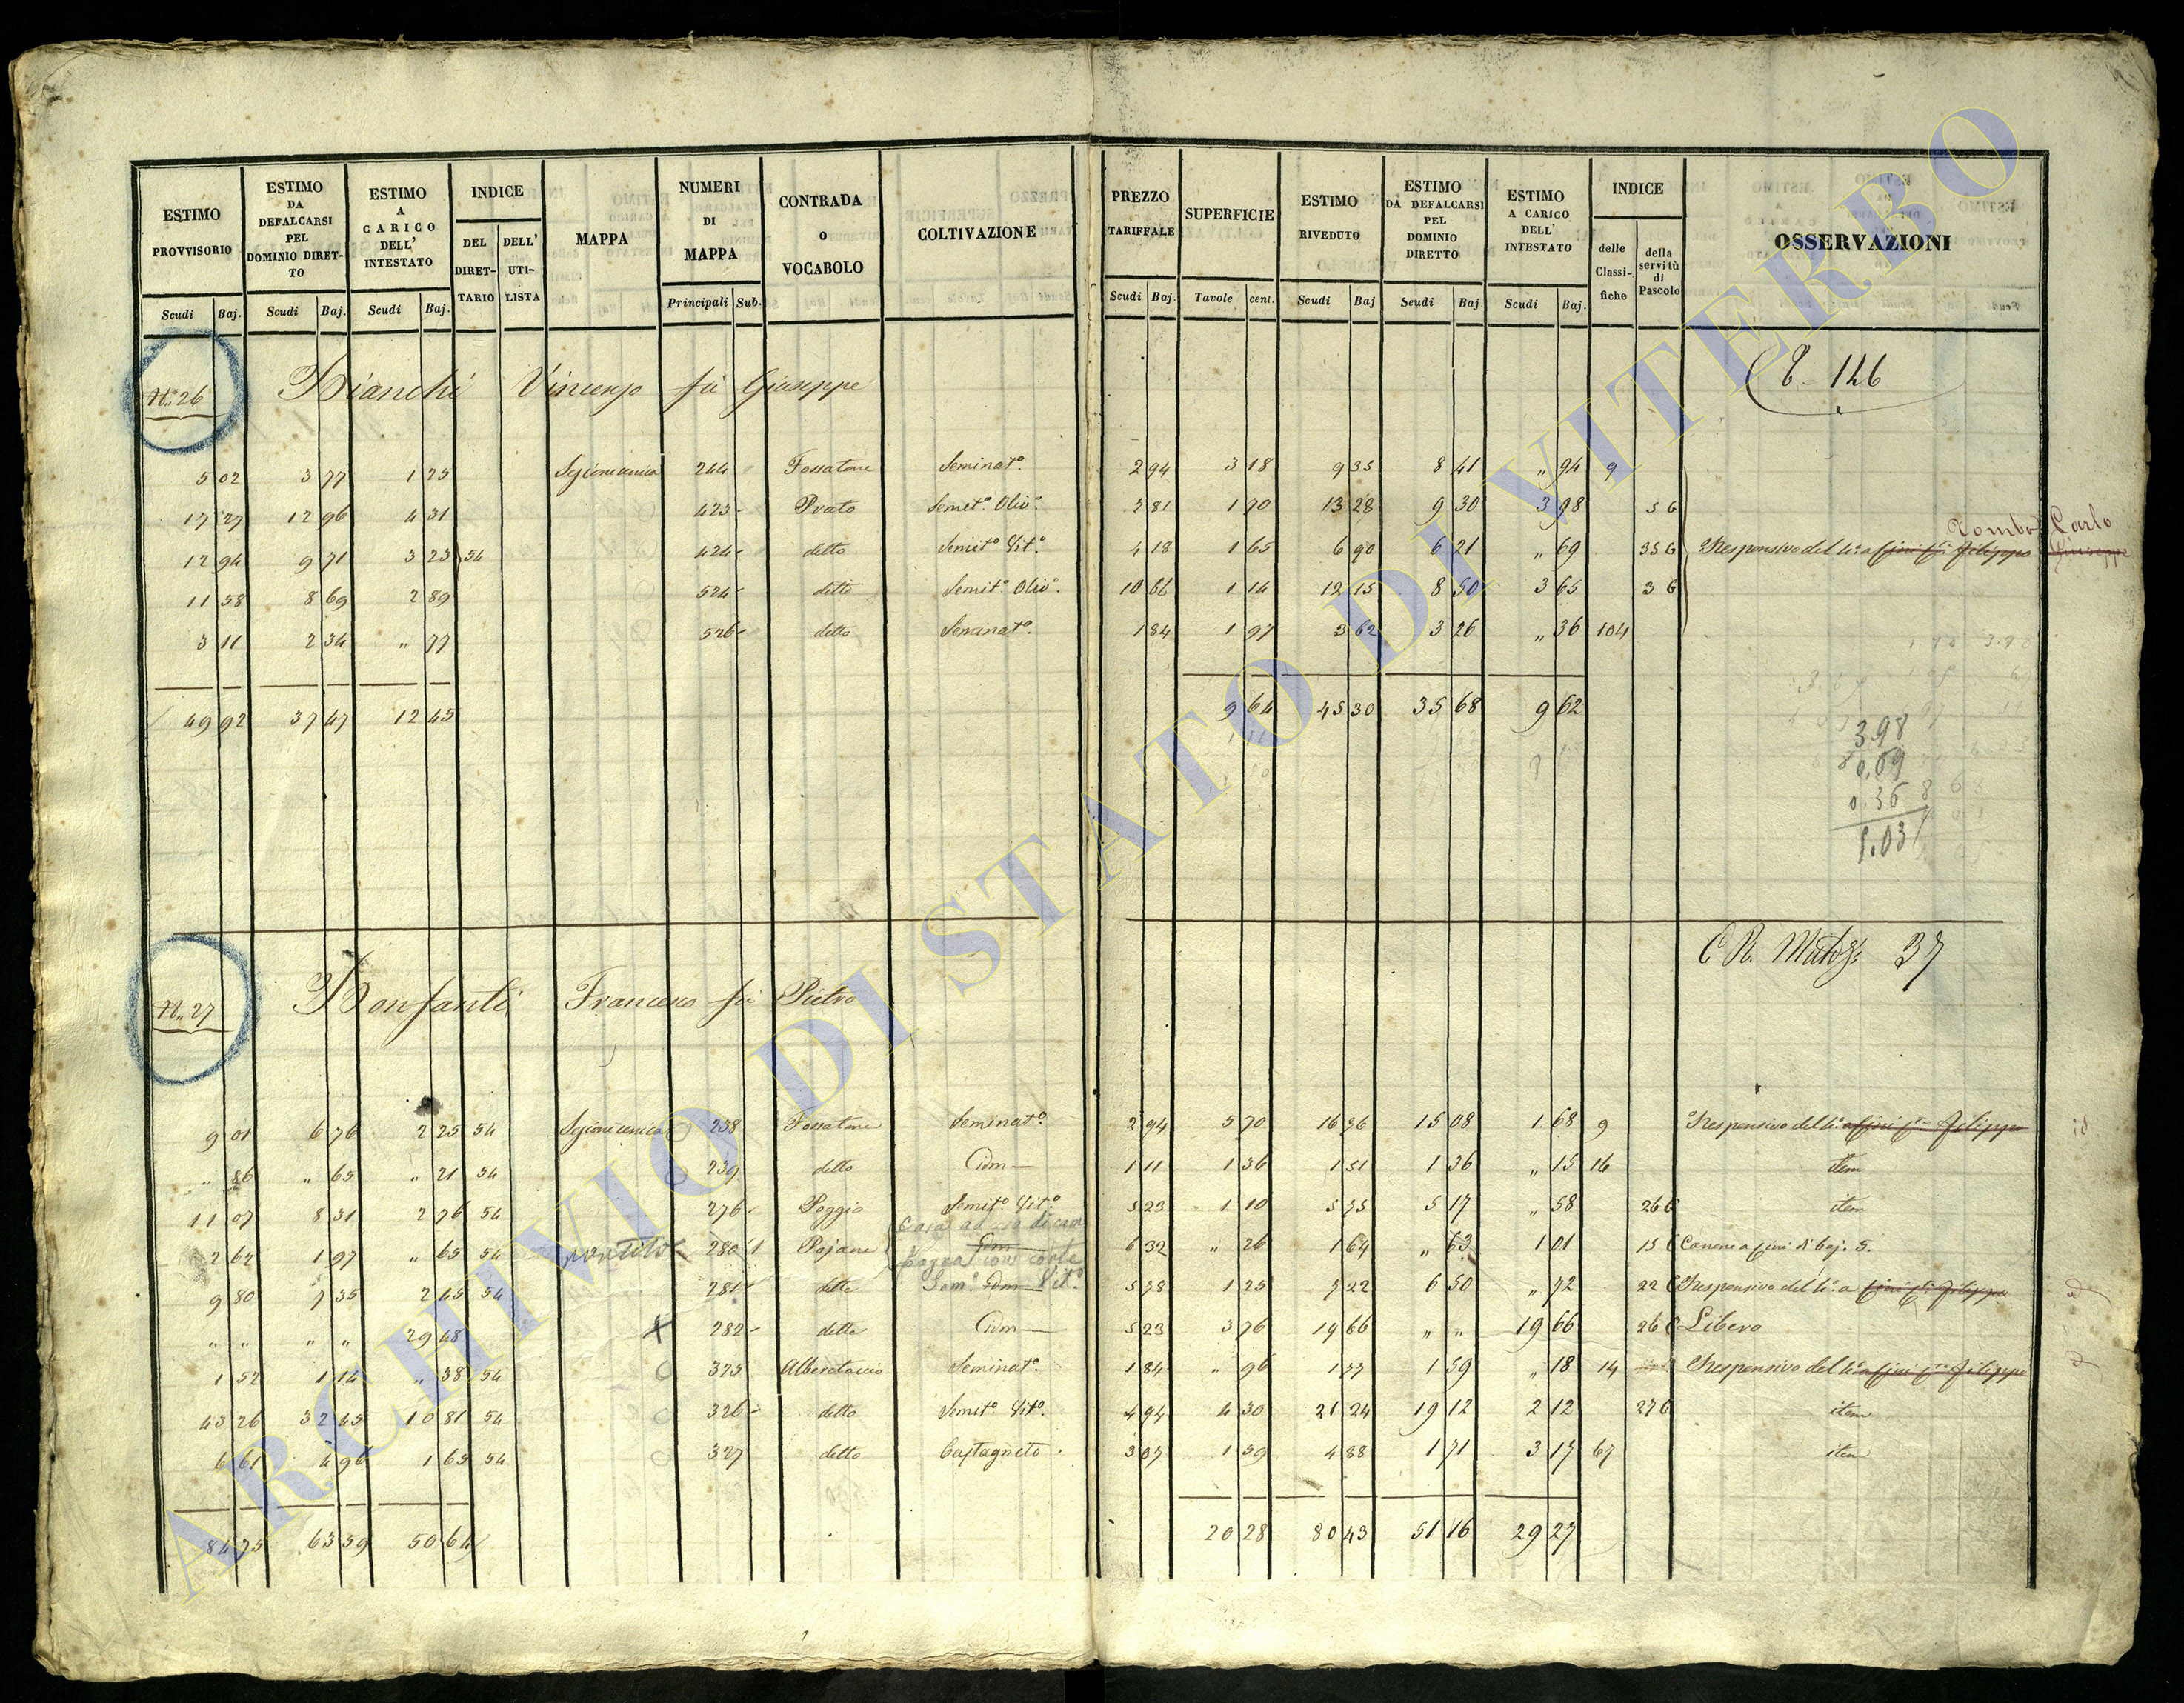 ESTIMO PROVVISORIO | ESTIMO DA DEFALCARSI PEL DOMINIO DIRETTO | ESTIMO A CARICO DELL' INTESTATO | INDICE DEL DIRETTARIO | DELL' UTILISTA | MAPPA | NUMERI DI MAPPA | CONTRADA O VOCABOLO | COLTIVAZIONE | PREZZO TARIFFALE | SUPERFICIE | ESTIMO RIVEDUTO | ESTIMO DA DEFALCARSI PEL DOMINIO DIRETTO | ESTIMO A CARICO DELL' INTESTATO | INDICE delle Classifiche | della servitù di Pascolo | OSSERVAZIONI
Scudi Baj. | Scudi Baj. | Scudi Baj. | Principali Sub. | Scudi Baj. | Tavole cent. | Scudi Baj | Scudi Baj | Scudi Baj.
N.º 26 Bianchi Vincenzo fù Giuseppe 146
5 02 | 3 77 | 1 25 | Sezione unica | 244 | Fossatone | Seminat.º | 2 94 | 3 18 | 9 35 | 8 41 | " 94 | 9
17 27 | 12 96 | 4 31 | 423 | Prato | Semit.º Oliv.º | 7 81 | 1 70 | 13 28 | 9 30 | 3 98 | 5 G
Carlo
12 94 | 9 71 | 3 23 | 54 | 424 | detto | Semit.º Vit.º | 4 18 | 1 65 | 6 90 | 6 21 | " 69 | 35 G | Responsivo del 4.º a fini Filippo Giuseppe
11 58 | 8 69 | 2 89 | 524 | detto | Semit.º Oliv.º | 10 66 | 1 14 | 12 15 | 8 50 | 3 65 | 3 G
3 11 | 2 34 | " 77 | 526 | detto | Seminat.º | 1 84 | 1 97 | 3 62 | 3 26 | " 36 | 104
49 92 | 37 47 | 12 45 | 9 64 | 45 30 | 35 68 | 9 62
3.98
0,69
0.36
N. 27 Bonfanti Francesco fù Pietro 37
9 01 | 6 76 | 2 25 | 54 | Sezione unica | 238 | Fossatone | Seminat.º | 2 94 | 5 70 | 16 76 | 15 08 | 1 68 | 9 | Responsivo del 4.º a fini Filippo
" 86 | " 65 | " 21 | 54 | 239 | detto | Idm | 1 11 | 1 36 | 1 51 | 1 36 | " 15 | 16 | item
11 07 | 8 31 | 2 76 | 54 | 276 | Poggio | Semit.º Vit.º | 5 23 | 1 10 | 5 75 | 5 17 | " 58 | 26 G | item
Casa ad uso di cam
2 62 | 1 97 | " 65 | 54 | 280 1 | Pojane | Idm | 6 32 | " 26 | 1 64 | " 63 | 1 01 | 15 G | Canone a fini di baj. 5.
pagna con corte
9 80 | 7 35 | 2 45 | 54 | 281 | detto | Sem.º Idm Vit.º | 5 78 | 1 25 | 7 22 | 6 50 | " 72 | 22 G | Responsivo del 4.º a fini Filippo
" " | " " | 29 48 | 282 | detto | Idm | 5 23 | 3 76 | 19 66 | " " | 19 66 | 26 G | Libero
1 52 | 1 14 | " 38 | 54 | 325 | Alberetaccio | Seminat.º | 1 84 | " 96 | 1 77 | 1 59 | " 18 | 14 | Responsivo del 4.º a fini Filippo
43 26 | 32 45 | 10 81 | 54 | 326 | detto | Semit.º Vit.º | 4 94 | 4 30 | 21 24 | 19 12 | 2 12 | 27 G | item
6 61 | 4 96 | 1 65 | 54 | 327 | detto | Castagneto | 3 07 | 1 59 | 4 88 | 1 71 | 3 17 | 67 | item
84 75 | 63 59 | 50 64 | 20 28 | 80 43 | 51 16 | 29 27
ARCHIVIO DI STATO DI VITERBO